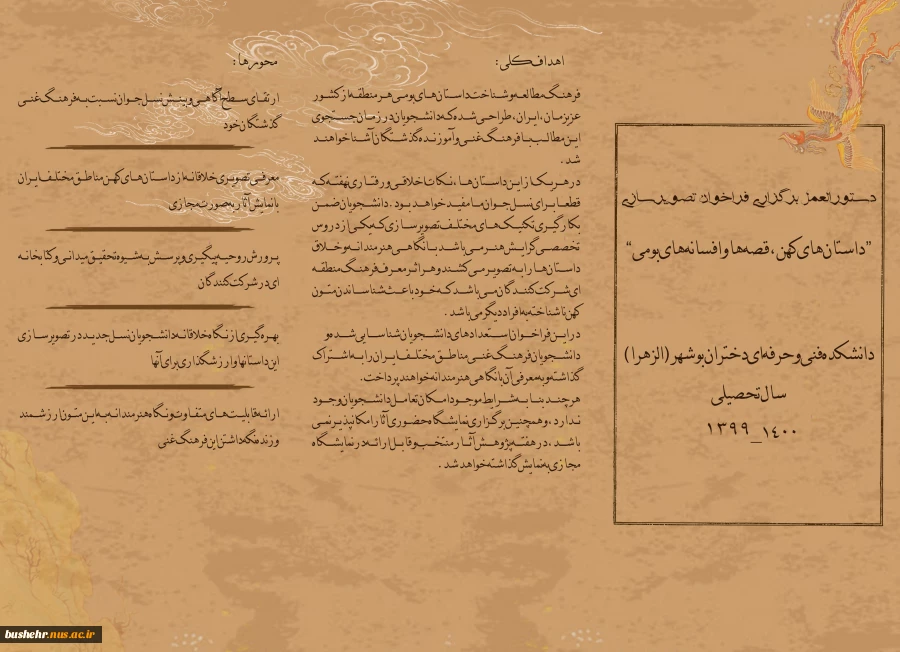 دستورالعمل برگزاری فراخوان تصویرسازی
”داستان‌های کهن، قصه‌ها و افسانه‌های بومی“
دانشکده فنی و حرفه‌ای دختران بوشهر (الزهرا)
سال تحصیلی
۱۳۹۹_۱۴۰۰
اهداف کلی:
فرهنگ مطالعه و شناخت داستان‌های بومی هر منطقه از کشور
عزیزمان، ایران، طراحی شده که دانشجویان در زمان جستجوی
این مطالب با فرهنگ غنی و آموزنده گذشتگان آشنا خواهند
شد.
در هر یک از این داستان‌ها، نکات اخلاقی و رفتاری نهفته که
قطعا برای نسل جوان ما مفید خواهد بود. دانشجویان ضمن
بکارگیری تکنیک‌های مختلف تصویرسازی که یکی از دروس
تخصصی گرایش هنر می‌باشد با نگاهی هنرمندانه و خلاق
داستان‌ها را به تصویر می‌کشند و هر اثر معرف فرهنگ منطقه
ای شرکت کنندگان می‌باشد که خود باعث شناساندن متون
کهن ناشناخته به افراد دیگر می‌باشد.
در این فراخوان استعدادهای دانشجویان شناسایی شده و
دانشجویان فرهنگ غنی مناطق مختلف ایران را به اشتراک
گذاشته و به معرفی آن با نگاهی هنرمندانه خواهند پرداخت.
هر چند بنا به شرایط موجود امکان تعامل دانشجویان وجود
ندارد، و همچنین برگزاری نمایشگاه حضوری آثار امکانپذیر نمی
باشد، در هفته پژوهش آثار منتخب و قابل ارائه در نمایشگاه
مجازی به نمایش گذاشته خواهد شد.
محورها:
ارتقای سطح آگاهی و بینش نسل جوان نسبت به فرهنگ غنی
گذشتگان خود
معرفی تصویری خلاقانه از داستان‌های کهن مناطق مختلف ایران
با نمایش آثار به صورت مجازی
پرورش روحیه پیگیری و پرسش به شیوه تحقیق میدانی و کتابخانه
ای در شرکت کنندگان
بهره‌گیری از نگاه خلاقانه دانشجویان نسل جدید در تصویرسازی
این داستانها و ارزشگذاری برای آنها
ارائه قابلیت‌های متفاوت و نگاه هنرمندانه به این متون ارزشمند
و زنده نگه داشتن این فرهنگ غنی
bushehr.nus.ac.ir